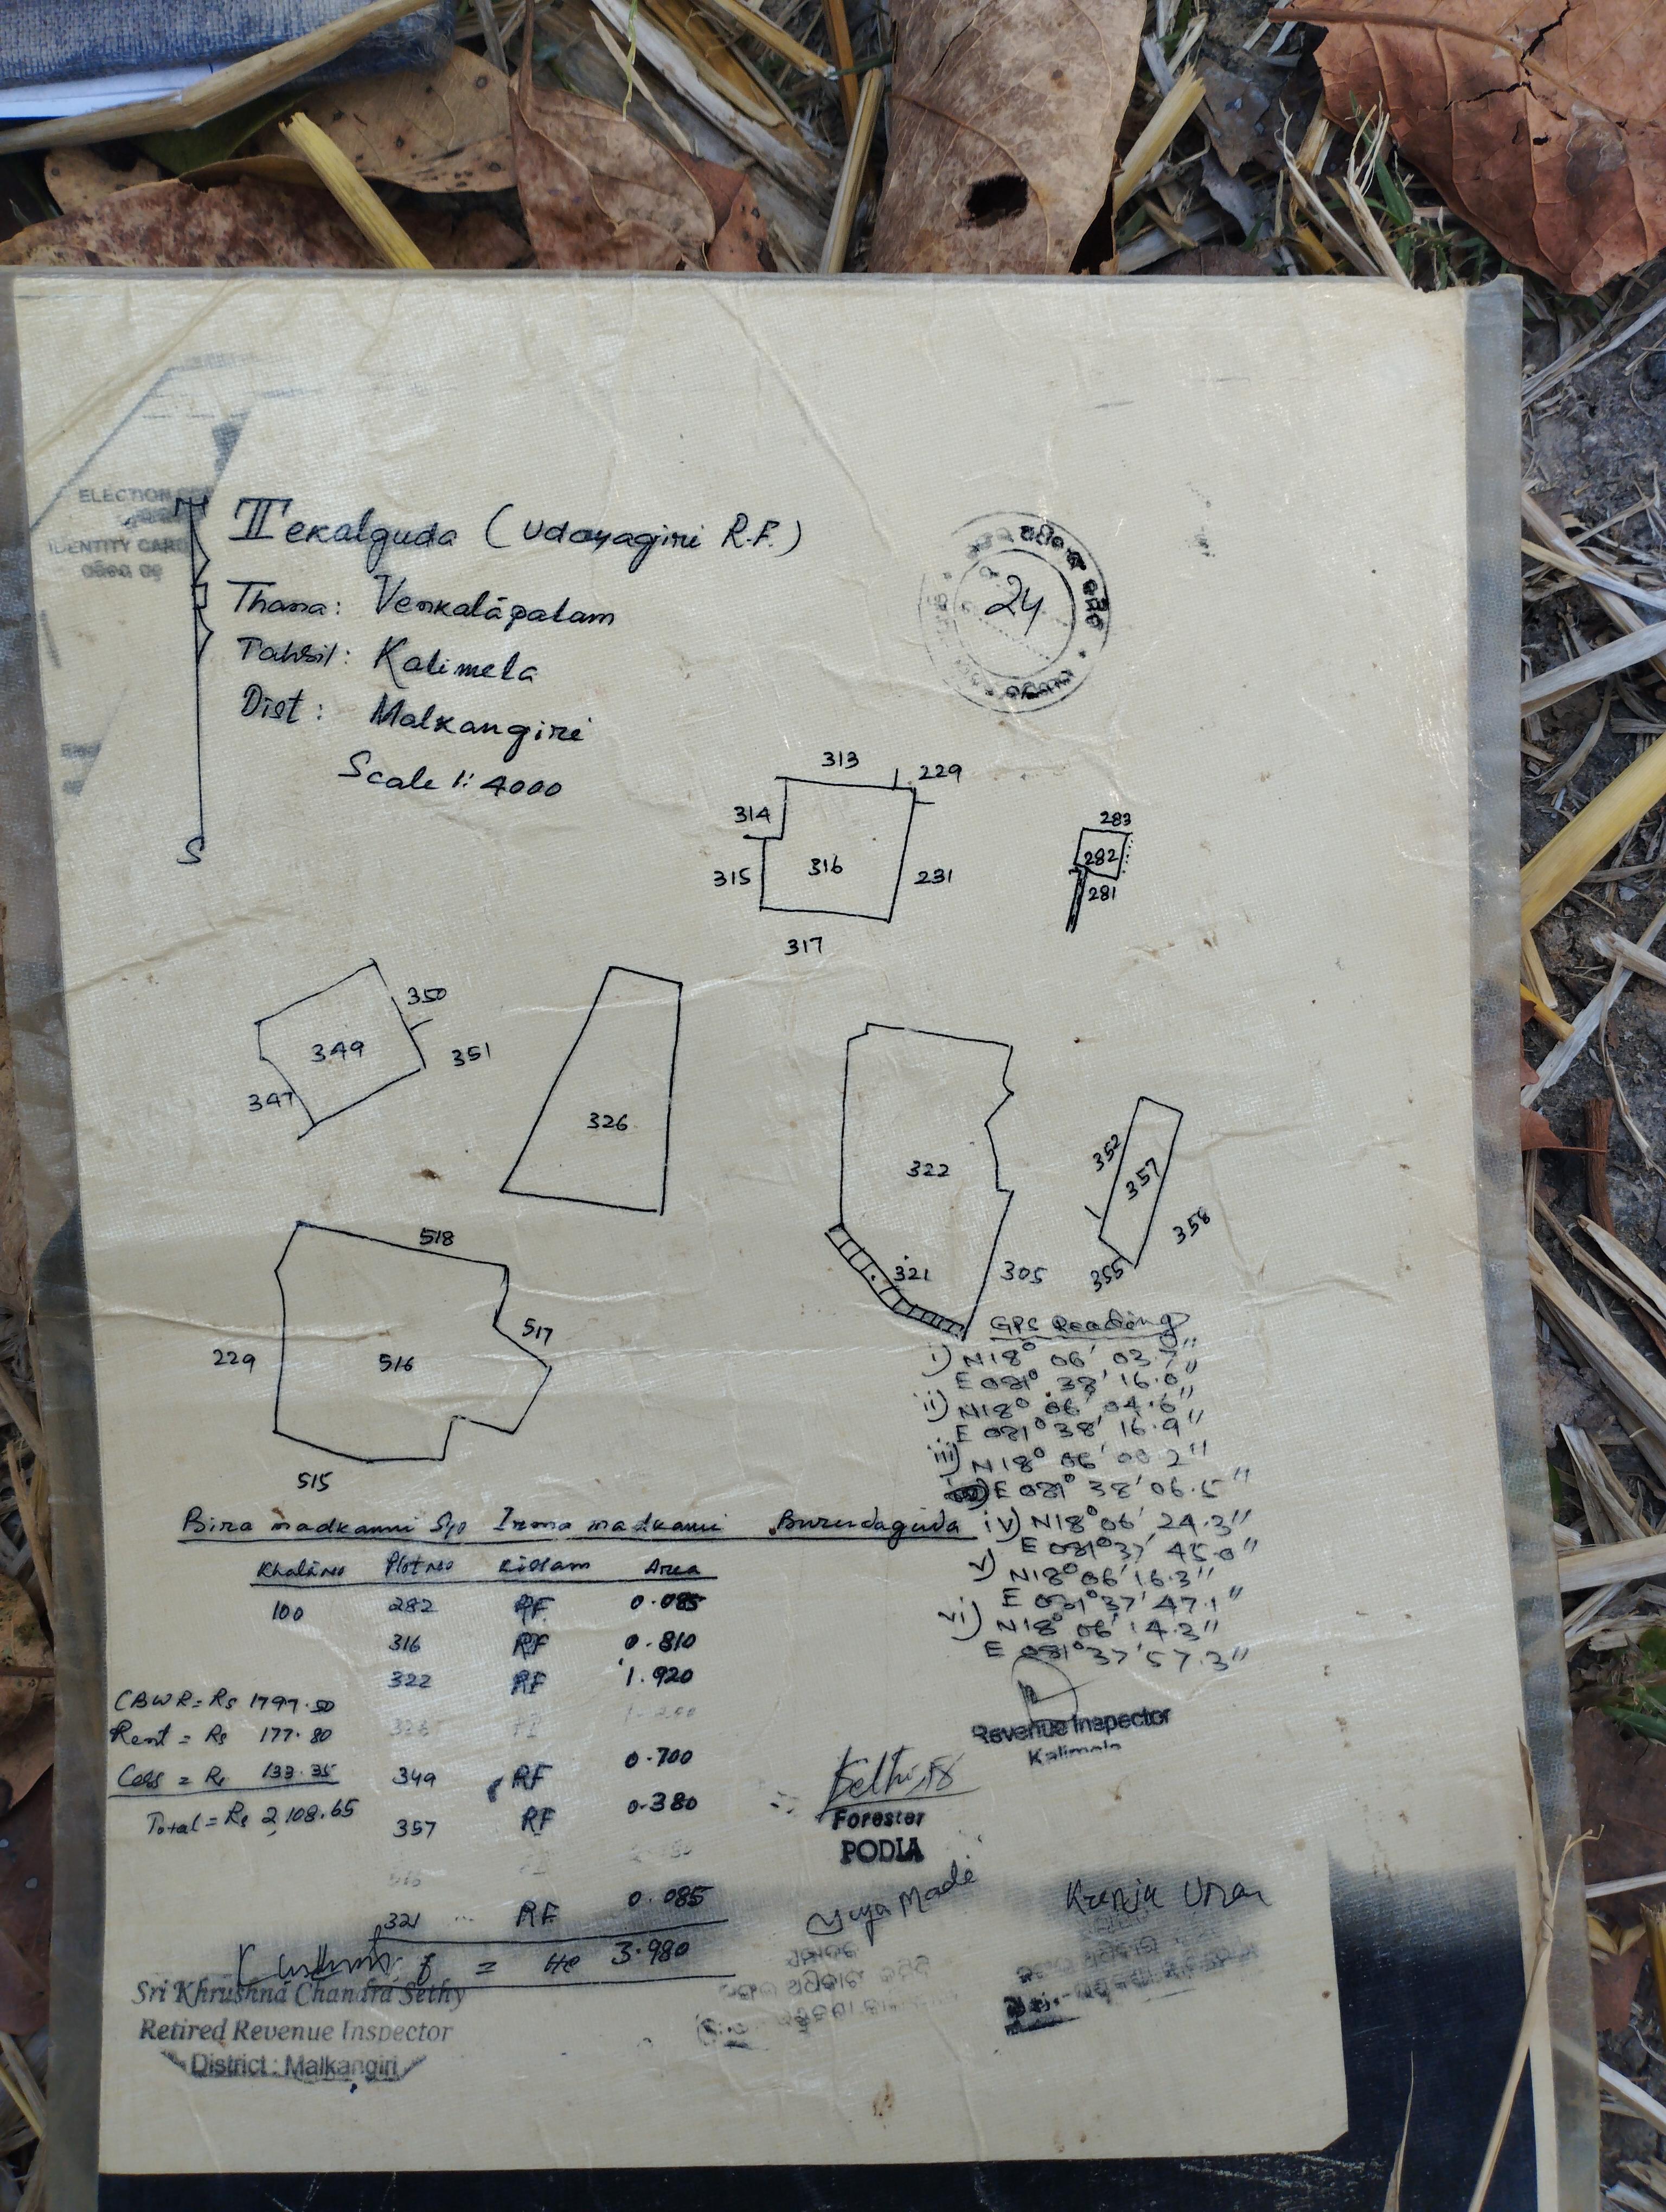 ELECTION
IDENTITY CARD
N
Tekalguda (Udayagiri R.F.)
Thana: Venkatapalam
Tahsil: Kalimela
Dist: Malkangiri
Scale 1:4000
S
24
313
229
314
316
315
231
317
283
282
281
350
349
351
347
326
322
352
357
358
355
321
305
518
517
229
516
515
GPS Reading
i) N18° 06' 03.7"
E 081° 38' 16.0"
ii) N18° 06' 04.6"
E 081° 38' 16.9"
iii) N18° 06' 2"
E 081° 38' 06.5"
iv) N18° 06' 24.3"
E 081° 37' 45.0"
v) N18° 06' 16.3"
E 081° 37' 47.1"
vi) N18° 06' 14.3"
E 081° 37' 57.3"
Bira madkami S/o Irma madkami Burudaguda
Khata no Plot no Kissam Area
100 282 RF 0.085
316 RF 0.810
322 RF 1.920
326
349 RF 0.700
357 RF 0.380
516
321 RF 0.085
= He 3.980
CBWR = Rs 1797.50
Rent = Rs 177.80
Cess = Rs 133.35
Total = Rs 2,108.65
Revenue Inspector
Kalimela
Forester
PODIA
Sri Khrushna Chandra Sethy
Retired Revenue Inspector
District : Malkangiri